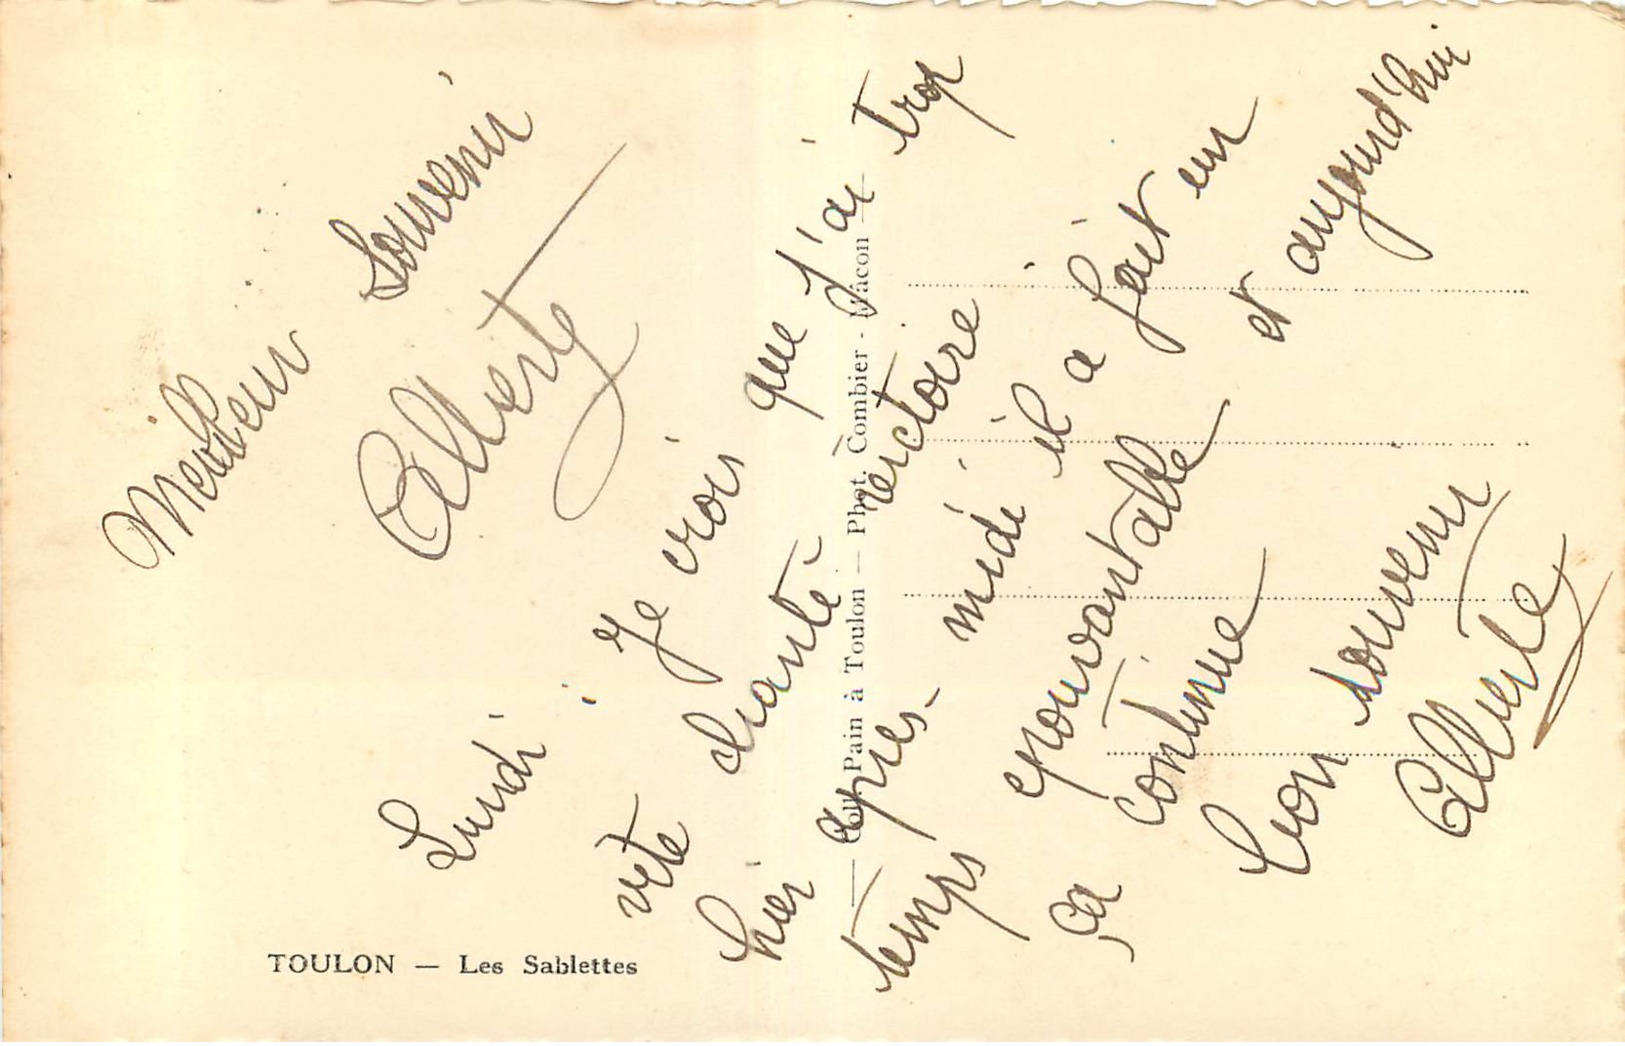 Meilleur Souvenir
Alberte
Lundi
Je crois que j'ai trop
vite chanté victoire
hier après-midi il a fait un
temps épouvantable et aujourd'hui
ça continue
Bon souvenir
Alberte
TOULON — Les Sablettes
Pain à Toulon — Phot. Combier - Macon —